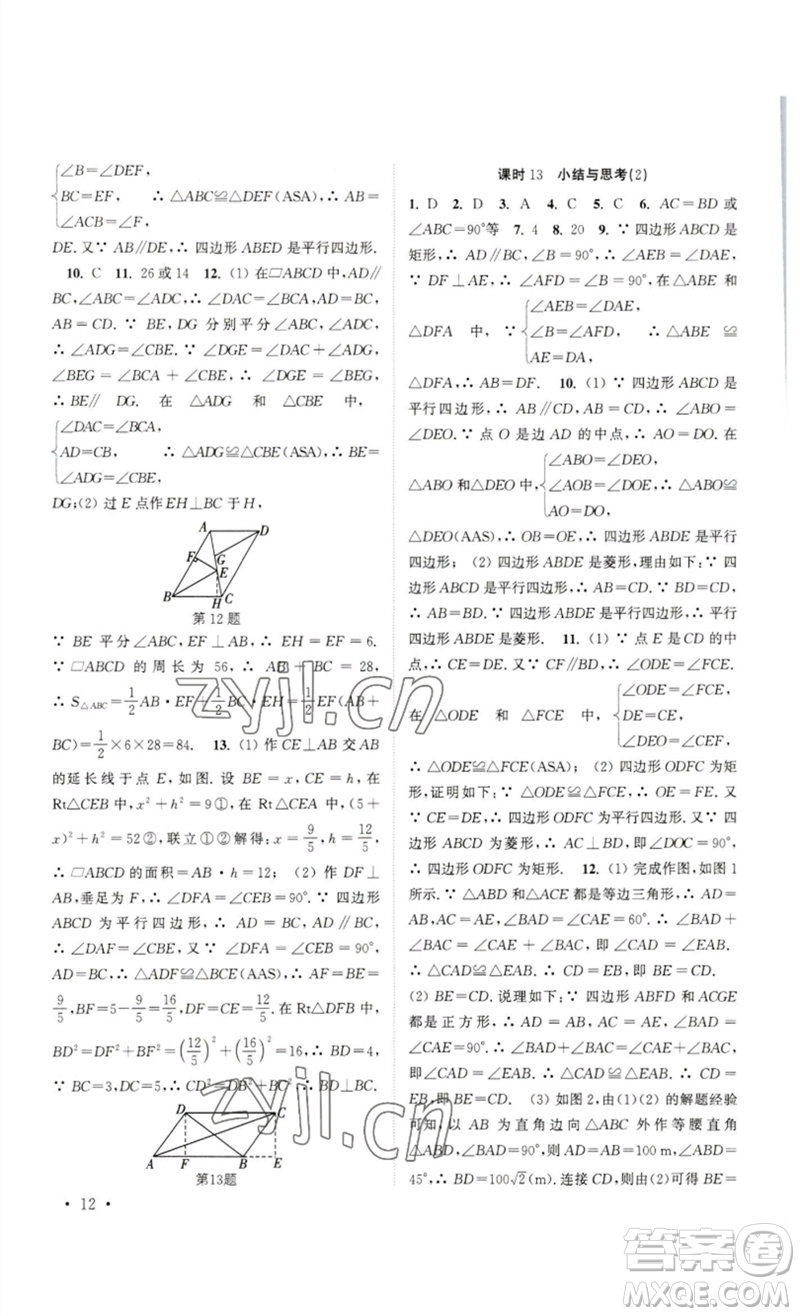 ∠B=∠DEF,
BC=EF, ∴ △ABC≌△DEF(ASA),∴ AB=
∠ACB=∠F,
DE. 又∵ AB∥DE,∴ 四边形 ABED 是平行四边形.
10. C 11. 26或14 12. (1) 在▱ABCD 中,AD∥
BC,∠ABC=∠ADC,∴ ∠DAC=∠BCA,AD=BC,
AB=CD. ∵ BE,DG 分别平分∠ABC,∠ADC,
∴ ∠ADG=∠CBE. ∵ ∠DGE=∠DAC+∠ADG,
∠BEG = ∠BCA + ∠CBE, ∴ ∠DGE = ∠BEG,
∴ BE∥ DG. 在 △ADG 和 △CBE 中,
∠DAC=∠BCA,
AD=CB, ∴ △ADG≌△CBE(ASA),∴ BE=
∠ADG=∠CBE,
DG;(2) 过 E 点作 EH⊥BC 于 H,
A D
F G
E
B H C
第12题
∵ BE 平分∠ABC,EF⊥AB,∴ EH=EF=6.
∵ ▱ABCD 的周长为 56, ∴ AB + BC = 28,
∴ S△ABC=1/2AB·EF+1/2BC·EH=1/2EF(AB+
BC)=1/2×6×28=84. 13. (1) 作CE⊥AB 交AB
的延长线于点 E,如图. 设 BE=x,CE=h,在
Rt△CEB 中,x²+h²=9①,在 Rt△CEA 中,(5+
x)²+h²=52②,联立①②解得:x=9/5,h=12/5,
∴ ▱ABCD 的面积=AB·h=12;(2) 作 DF⊥
AB,垂足为 F,∴ ∠DFA=∠CEB=90°. ∵ 四边形
ABCD 为平行四边形,∴ AD=BC,AD∥BC,
∴ ∠DAF=∠CBE,又∵ ∠DFA=∠CEB=90°,
AD=BC,∴ △ADF≌△BCE(AAS),∴ AF=BE=
9/5,BF=5-9/5=16/5,DF=CE=12/5. 在 Rt△DFB 中,
BD²=DF²+BF²=(12/5)²+(16/5)²=16,∴ BD=4.
∵ BC=3,DC=5,∴ CD²=DB²+BC²,∴ BD⊥BC.
D C
A F B E
第13题
• 12 •
课时 13 小结与思考(2)
1. D 2. D 3. A 4. C 5. C 6. AC=BD或
∠ABC=90°等 7. 4 8. 20 9. ∵ 四边形ABCD 是
矩形,∴ AD∥BC,∠B=90°,∴ ∠AEB=∠DAE,
∵ DF⊥AE,∴ ∠AFD=∠B=90°,在 △ABE 和
∠AEB=∠DAE,
△DFA 中, ∵ ∠B=∠AFD, ∴ △ABE ≌
AE=DA,
△DFA,∴ AB=DF. 10. (1) ∵ 四边形 ABCD 是
平行四边形,∴ AB∥CD,AB=CD,∴ ∠ABO=
∠DEO. ∵ 点 O 是 AD 的中点,∴ AO=DO. 在
∠ABO=∠DEO,
△ABO 和△DEO中, ∠AOB=∠DOE, ∴ △ABO≌
AO=DO,
△DEO(AAS),∴ OB=OE,∴ 四边形 ABDE 是平行
四边形;(2) 四边形 ABDE 是菱形,理由如下:∵ 四
边形 ABCD 是平行四边形,∴ AB=CD. ∵ BD=
CD,∴ AB=BD. ∵ 四边形 ABDE 是平行四边形,
∴ 平行四边形 ABDE 是菱形. 11. (1) ∵ 点 E 是 CD 的中
点,∴ CE=DE. ∵ CF∥BD,∴ ∠ODE=∠FCE.
∠ODE=∠FCE,
在 △ODE 和 △FCE 中, DE=CE,
∠DEO=∠CEF,
∴ △ODE≌△FCE(ASA);(2) 四边形 ODFC 为矩
形,证明如下:∵ △ODE≌△FCE,∴ OE=FE. 又
∵ CE=DE,∴ 四边形 ODFC 为平行四边形. 又∵ 四
边形 ABCD 为菱形,∴ AC⊥BD,即∠DOC=90°,
∴ 四边形 ODFC 为矩形. 12. (1) 完成作图,如图 1
所示. ∵ △ABD 和△ACE 都是等边三角形,∴ AD=
AB,AC=AE,∠BAD=∠CAE=60°. ∴ ∠BAD+
∠BAC=∠CAE+∠BAC,即 ∠CAD=∠EAB.
∴ △CAD≌△EAB. ∴ CD=EB,即 BE=CD.
(2) BE=CD. 说理如下:∵ 四边形 ABFD 和 ACGE
都是正方形,∴ AD=AB,AC=AE,∠BAD=
∠CAE=90°. ∴ ∠BAD+∠BAC=∠CAE+∠BAC,
即∠CAD=∠EAB. ∴ △CAD≌△EAB. ∴ CD=
EB,即 BE=CD. (3) 由(1),(2)的解题经验
可知,以 AB 为直角边向△ABC 外作等腰直角三角
形 ABD,∠BAD=90°,则 AD=AB=100 m,∠ABD=
45°,∴ BD=100√2(m). 连接 CD,由(2)可得 BE=
zyjl.cn
zyjl.cn
答案圈
MXQE.COM